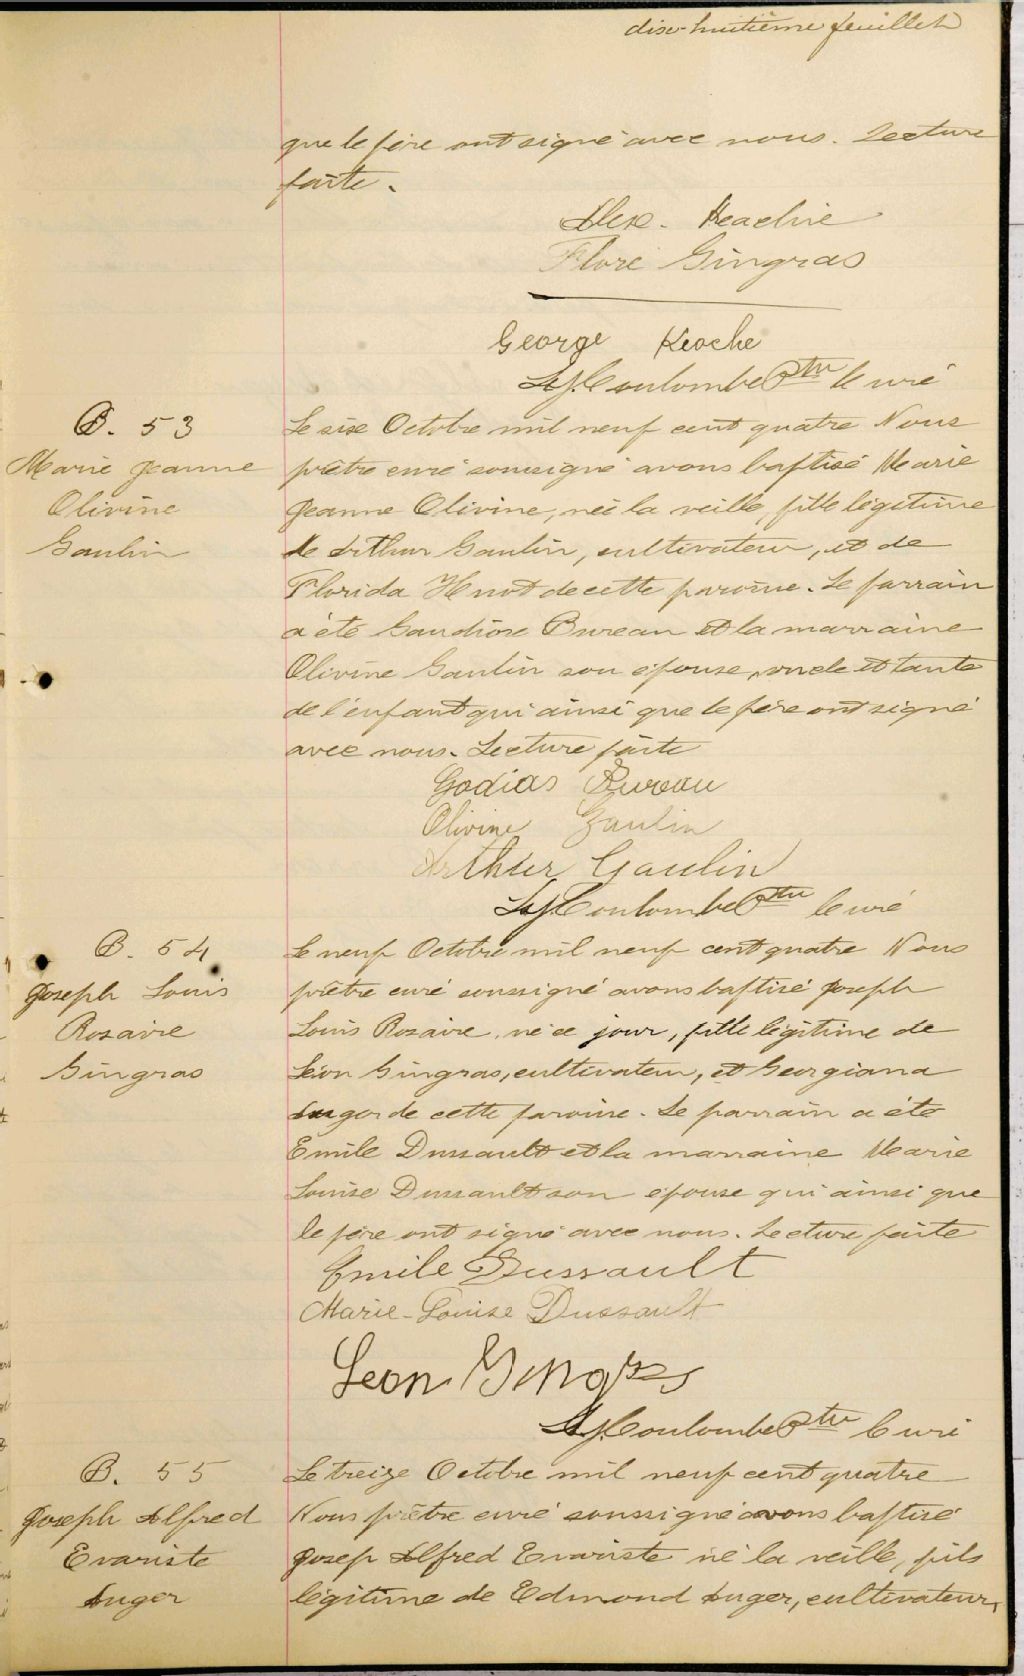 dix-huitième feuillet
que le père ont signé avec nous. Lecture
faite.
Alex.
Flore Gingras
George Keoche
Coulombe Ptre Curé
B. 53
Marie Jeanne
Olivine
Gaulin
Le six Octobre mil neuf cent quatre Nous
prêtre curé soussigné avons baptisé Marie
Jeanne Olivine, née la veille, fille légitime
de Arthur Gaulin, cultivateur, et de
Florida Huot de cette paroisse. Le parrain
a été Gaudiose Bureau et la marraine
Olivine Gaulin son épouse, oncle et tante
de l'enfant qui ainsi que le père ont signé
avec nous. Lecture faite
Godias Bureau
Olivine Gaulin
Arthur Gaulin
Coulombe Ptre Curé
B. 54
Joseph Louis
Rosaire
Gingras
Le neuf Octobre mil neuf cent quatre Nous
prêtre curé soussigné avons baptisé Joseph
Louis Rosaire, né ce jour, fille légitime de
Léon Gingras, cultivateur, et Georgiana
Auger de cette paroisse. Le parrain a été
Emile Dussault et la marraine Marie
Louise Dussault son épouse qui ainsi que
le père ont signé avec nous. Lecture faite
Emile Dussault
Marie-Louise Dussault
Leon Gingras
Coulombe Ptre Curé
B. 55
Joseph Alfred
Evariste
Auger
Le treize Octobre mil neuf cent quatre
Nous prêtre curé soussigné avons baptisé
Josep Alfred Evariste né la veille, fils
légitime de Edmond Auger, cultivateur,